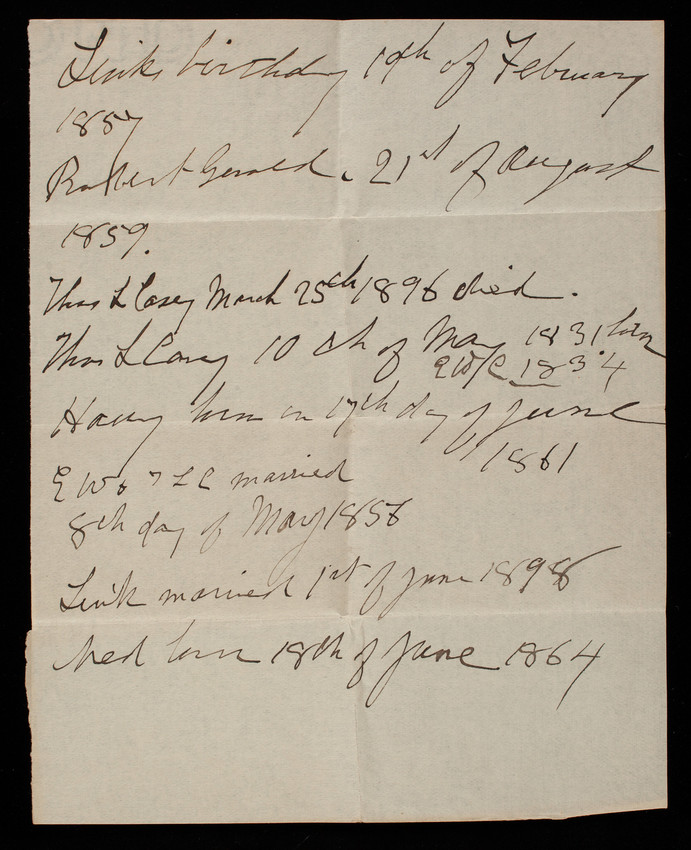 Links birthday 19th of February
1857
Robert Gerald. 21st of August
1859.
Thos L Casey March 25th 1896 died.
Thos L Casey 10th of May 1831 born
EWC 1834
Harry born on 17th day of June
1861
EW & TLC married
8th day of May 1856
Link married 1st of June 1898
Ned born 18th of June 1864